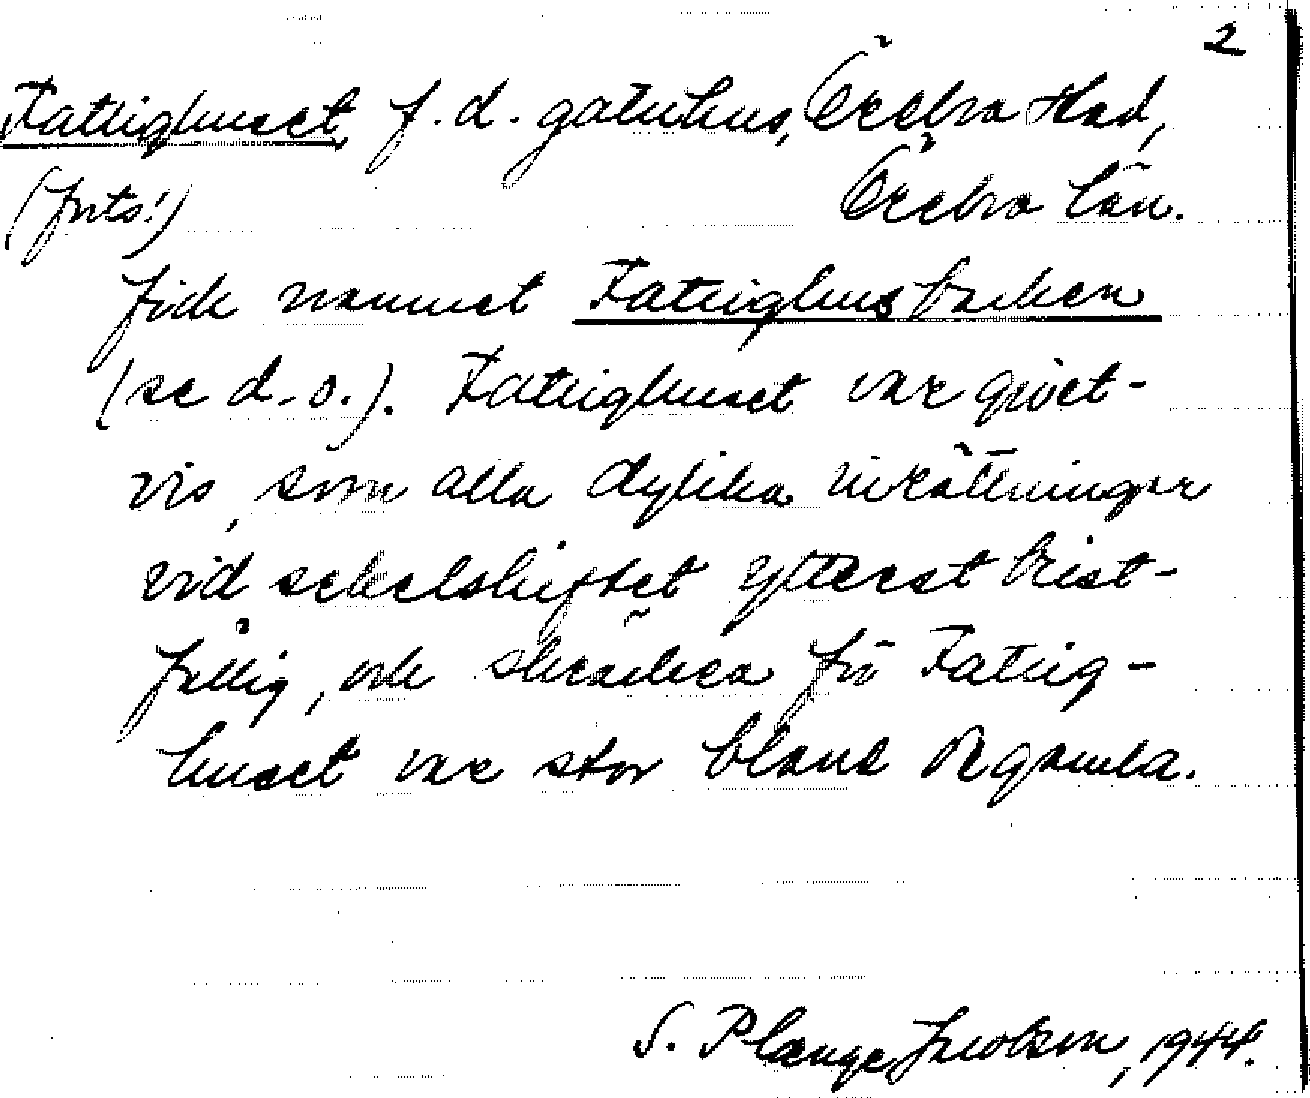 2
Fattighuset, f.d. gatuhus, Örebro stad,
(forts.) Örebro län.
fick namnet Fattighusbacken
(se d.o.). Fattighuset var givet-
vis, som alla dylika inrättningar
vid sekelskiftet ytterst brist-
fällig, och skräcken för Fattig-
huset var stor bland de gamla.
S. Plænge Jacobson, 1944.